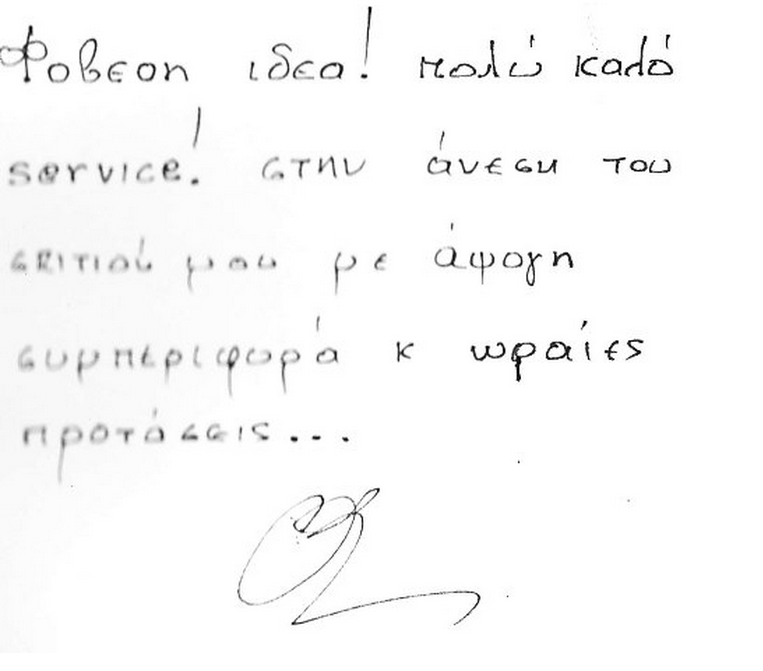 Φοβερη ιδεα! πολύ καλό
service! στην άνεση του
σπιτιού μου με άψογη
συμπεριφορά κ ωραίες
προτάσεις...